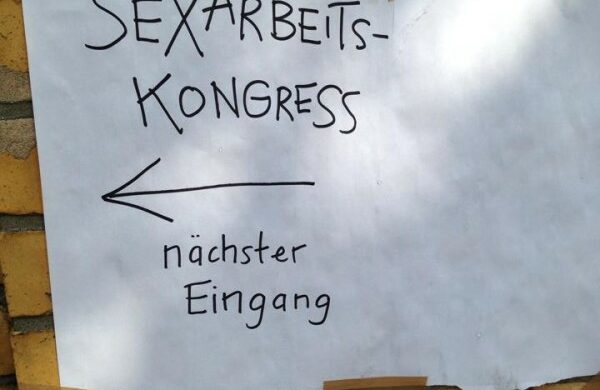 SEXARBEITS-
KONGRESS
nächster
Eingang